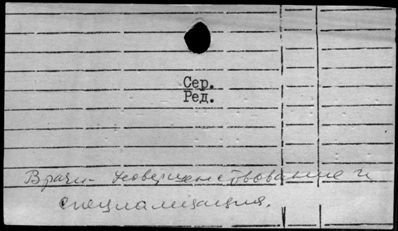 Сер.
Ред.
Врачи - усовершенствование и
специализация.